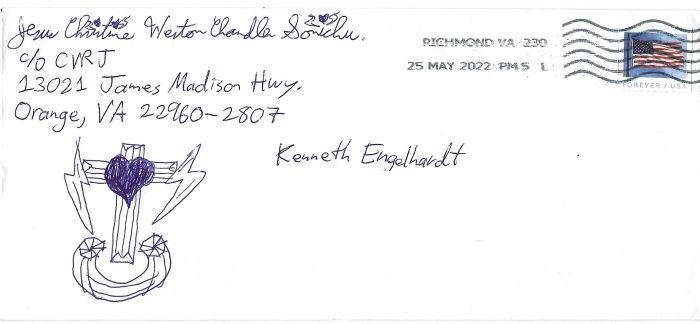 Jesus Christine Weston Chandler Sonichu.
c/o CVRJ
13021 James Madison Hwy.
Orange, VA 22960-2807
RICHMOND VA 230
25 MAY 2022 PM 5 L
FOREVER / USA
Kenneth Engelhardt